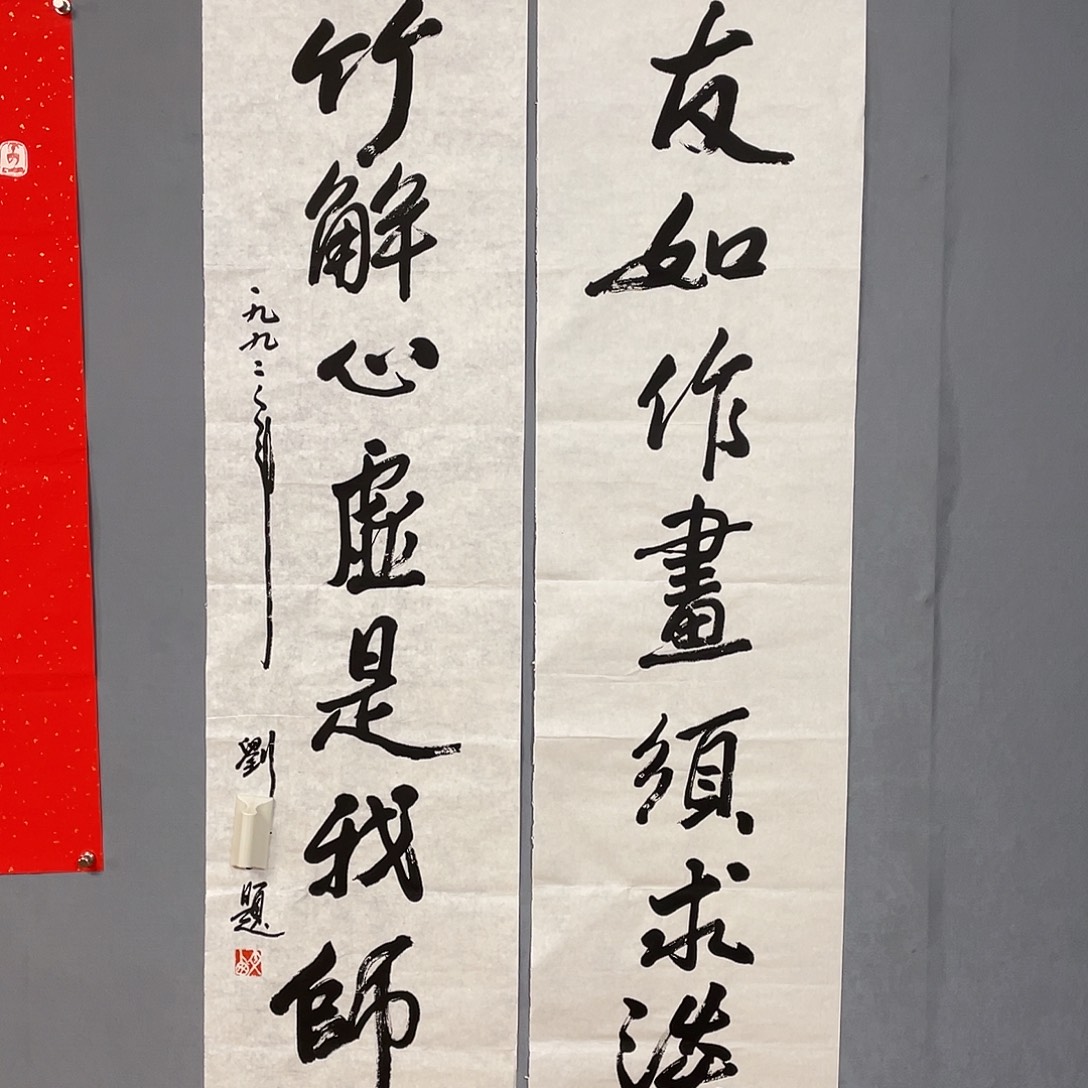 友如作畫須求淡
竹解心虛是我師
一九九二年
劉
題